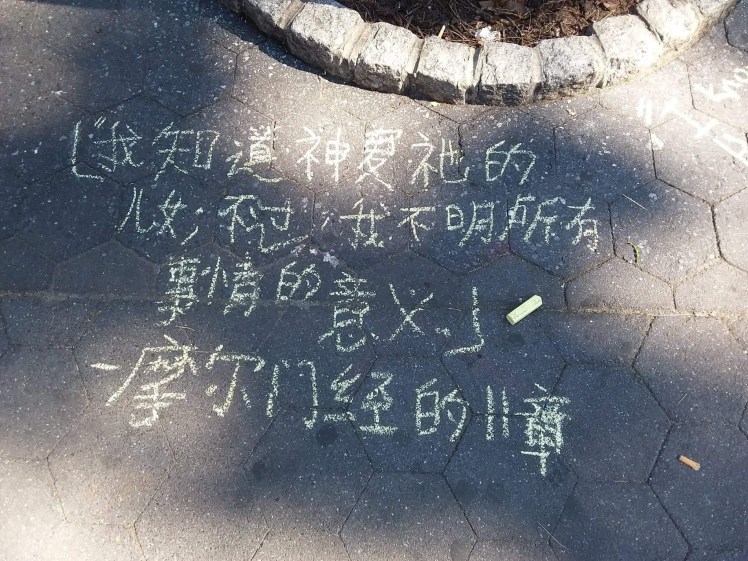 「我知道神爱祂的
儿女; 不过, 我不明所有
事情的意义.」
-摩尔门经的11章